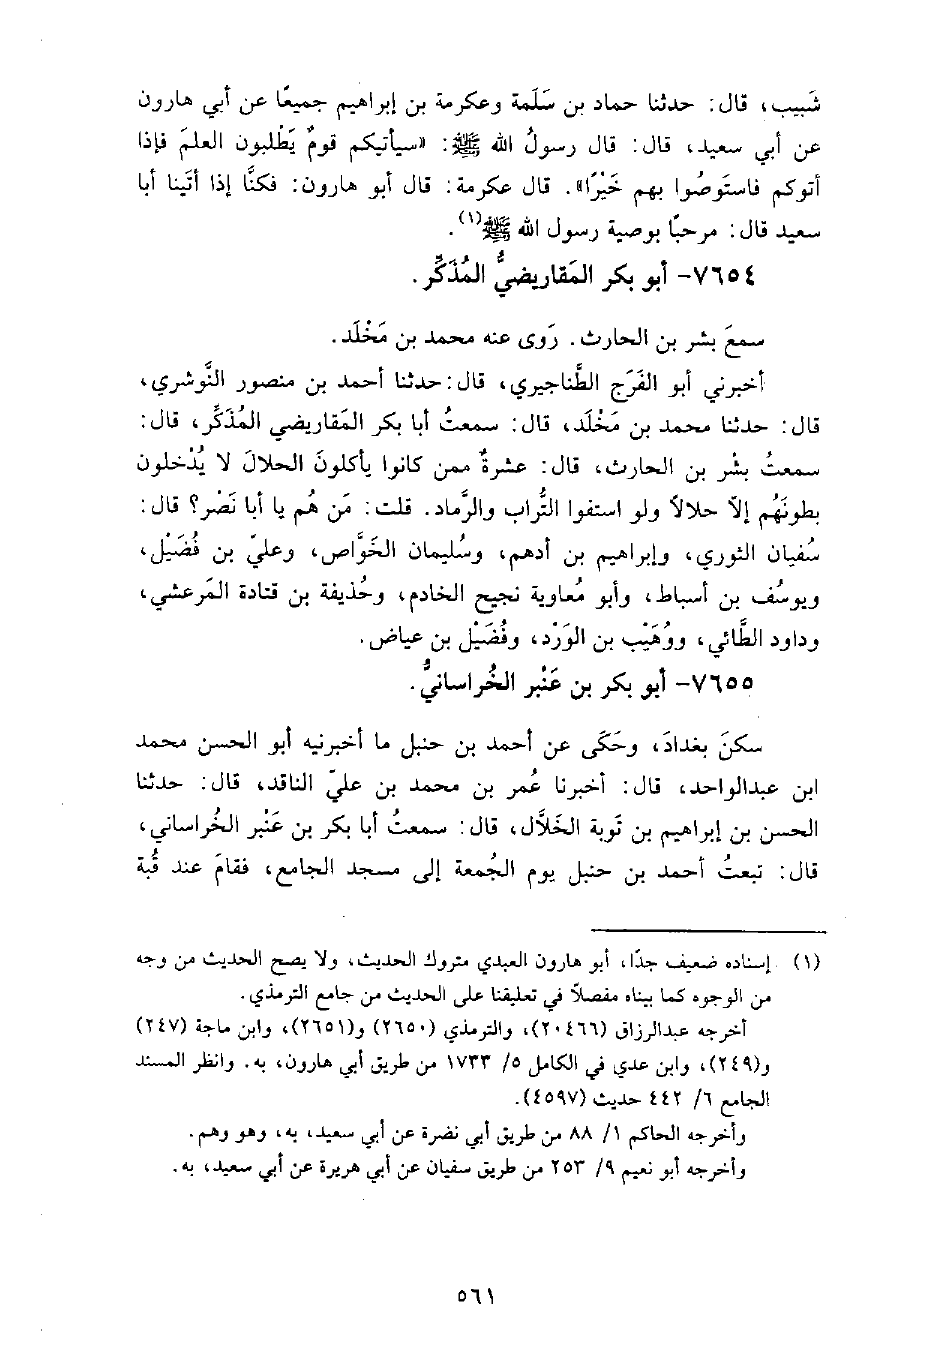 شَبيب، قال: حدثنا حماد بن سَلَمة وعكرمة بن إبراهيم جميعًا عن أبي هارون
عن أبي سعيد، قال: قال رسولُ الله ﷺ: «سيأتيكم قومٌ يَطْلبون العلمَ فإذا
أتوكم فاستَوصُوا بهم خَيْرًا». قال عكرمة: قال أبو هارون: فكنَّا إذا أتَينا أبا
سعيد قال: مرحبًا بوصية رسول الله ﷺ(١).
٧٦٥٤- أبو بكر المَقاريضيُّ المُذَكِّر.
سمعَ بشر بن الحارث. رَوى عنه محمد بن مَخْلَد.
أخبرني أبو الفَرَج الطَّناجيري، قال: حدثنا أحمد بن منصور النَّوشري،
قال: حدثنا محمد بن مَخْلَد، قال: سمعتُ أبا بكر المَقاريضي المُذَكِّر، قال:
سمعتُ بِشْر بن الحارث، قال: عشرةٌ ممن كانوا يأكلونَ الحلالَ لا يُدْخلون
بطونَهُم إلاّ حلالاً ولو استفوا التُّراب والرَّماد. قلت: مَن هُم يا أبا نَصْر؟ قال:
سُفيان الثوري، وإبراهيم بن أدهم، وسُليمان الخَوَّاص، وعليّ بن فُضَيْل،
ويوسُف بن أسباط، وأبو مُعاوية نجيح الخادم، وحُذيفة بن قتادة المَرعشي،
وداود الطَّائي، ووُهَيْب بن الوَرْد، وفُضَيْل بن عياض.
٧٦٥٥- أبو بكر بن عَنْبر الخُراسانيُّ.
سكنَ بغدادَ، وحَكَى عن أحمد بن حنبل ما أخبرنيه أبو الحسن محمد
ابن عبدالواحد، قال: أخبرنا عُمر بن محمد بن عليّ الناقد، قال: حدثنا
الحسن بن إبراهيم بن تَوبة الخَلَّال، قال: سمعتُ أبا بكر بن عَنْبر الخُراساني،
قال: تبعتُ أحمد بن حنبل يوم الجُمعة إلى مسجد الجامع، فقامَ عند قُبة
(١) إسناده ضعيف جدًا، أبو هارون العبدي متروك الحديث، ولا يصح الحديث من وجه
من الوجوه كما بيناه مفصلاً في تعليقنا على الحديث من جامع الترمذي.
أخرجه عبدالرزاق (٢٠٤٦٦)، والترمذي (٢٦٥٠) و(٢٦٥١)، وابن ماجة (٢٤٧)
و(٢٤٩)، وابن عدي في الكامل ٥/ ١٧٣٣ من طريق أبي هارون، به. وانظر المسند
الجامع ٦/ ٤٤٢ حديث (٤٥٩٧).
وأخرجه الحاكم ١/ ٨٨ من طريق أبي نضرة عن أبي سعيد، به، وهو وهم.
وأخرجه أبو نعيم ٩/ ٢٥٣ من طريق سفيان عن أبي هريرة عن أبي سعيد، به.
٥٦١